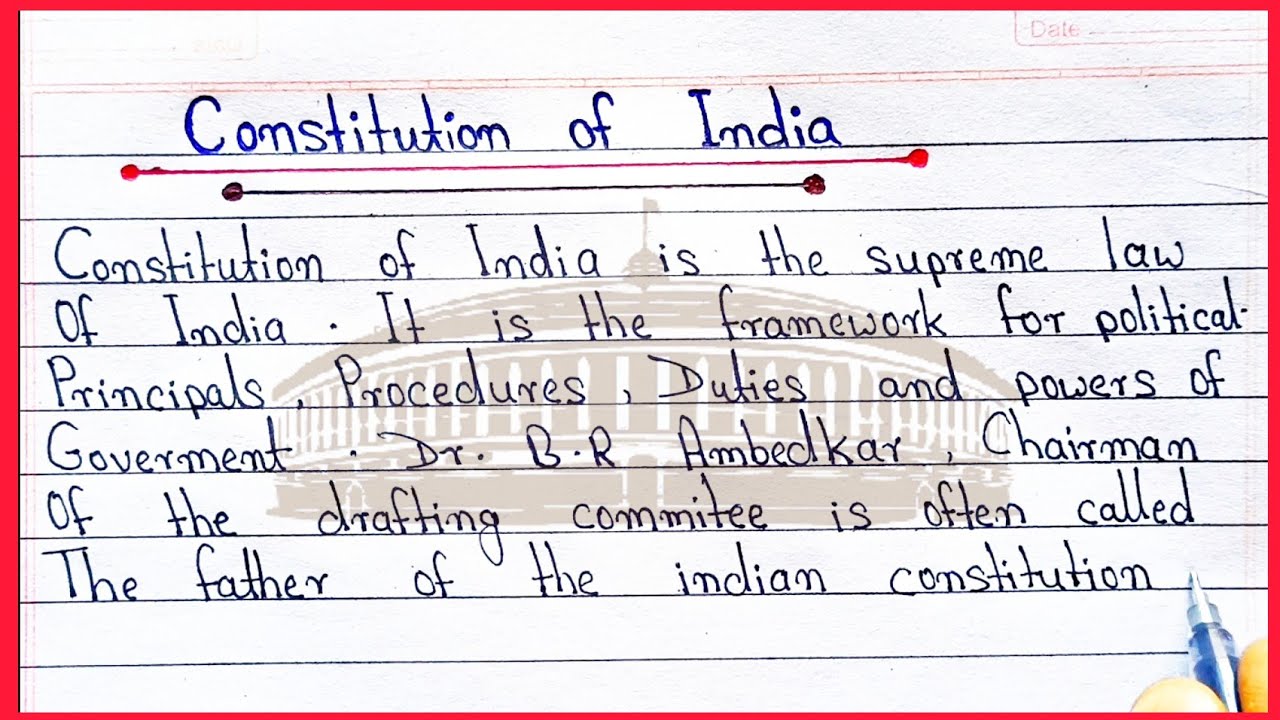 Date
Constitution of India
Constitution of India is the supreme law
Of India. It is the framework for political.
Principals, Procedures, Duties and powers of
Goverment. Dr. B.R Ambedkar, Chairman
Of the drafting commitee is often called
The father of the indian constitution